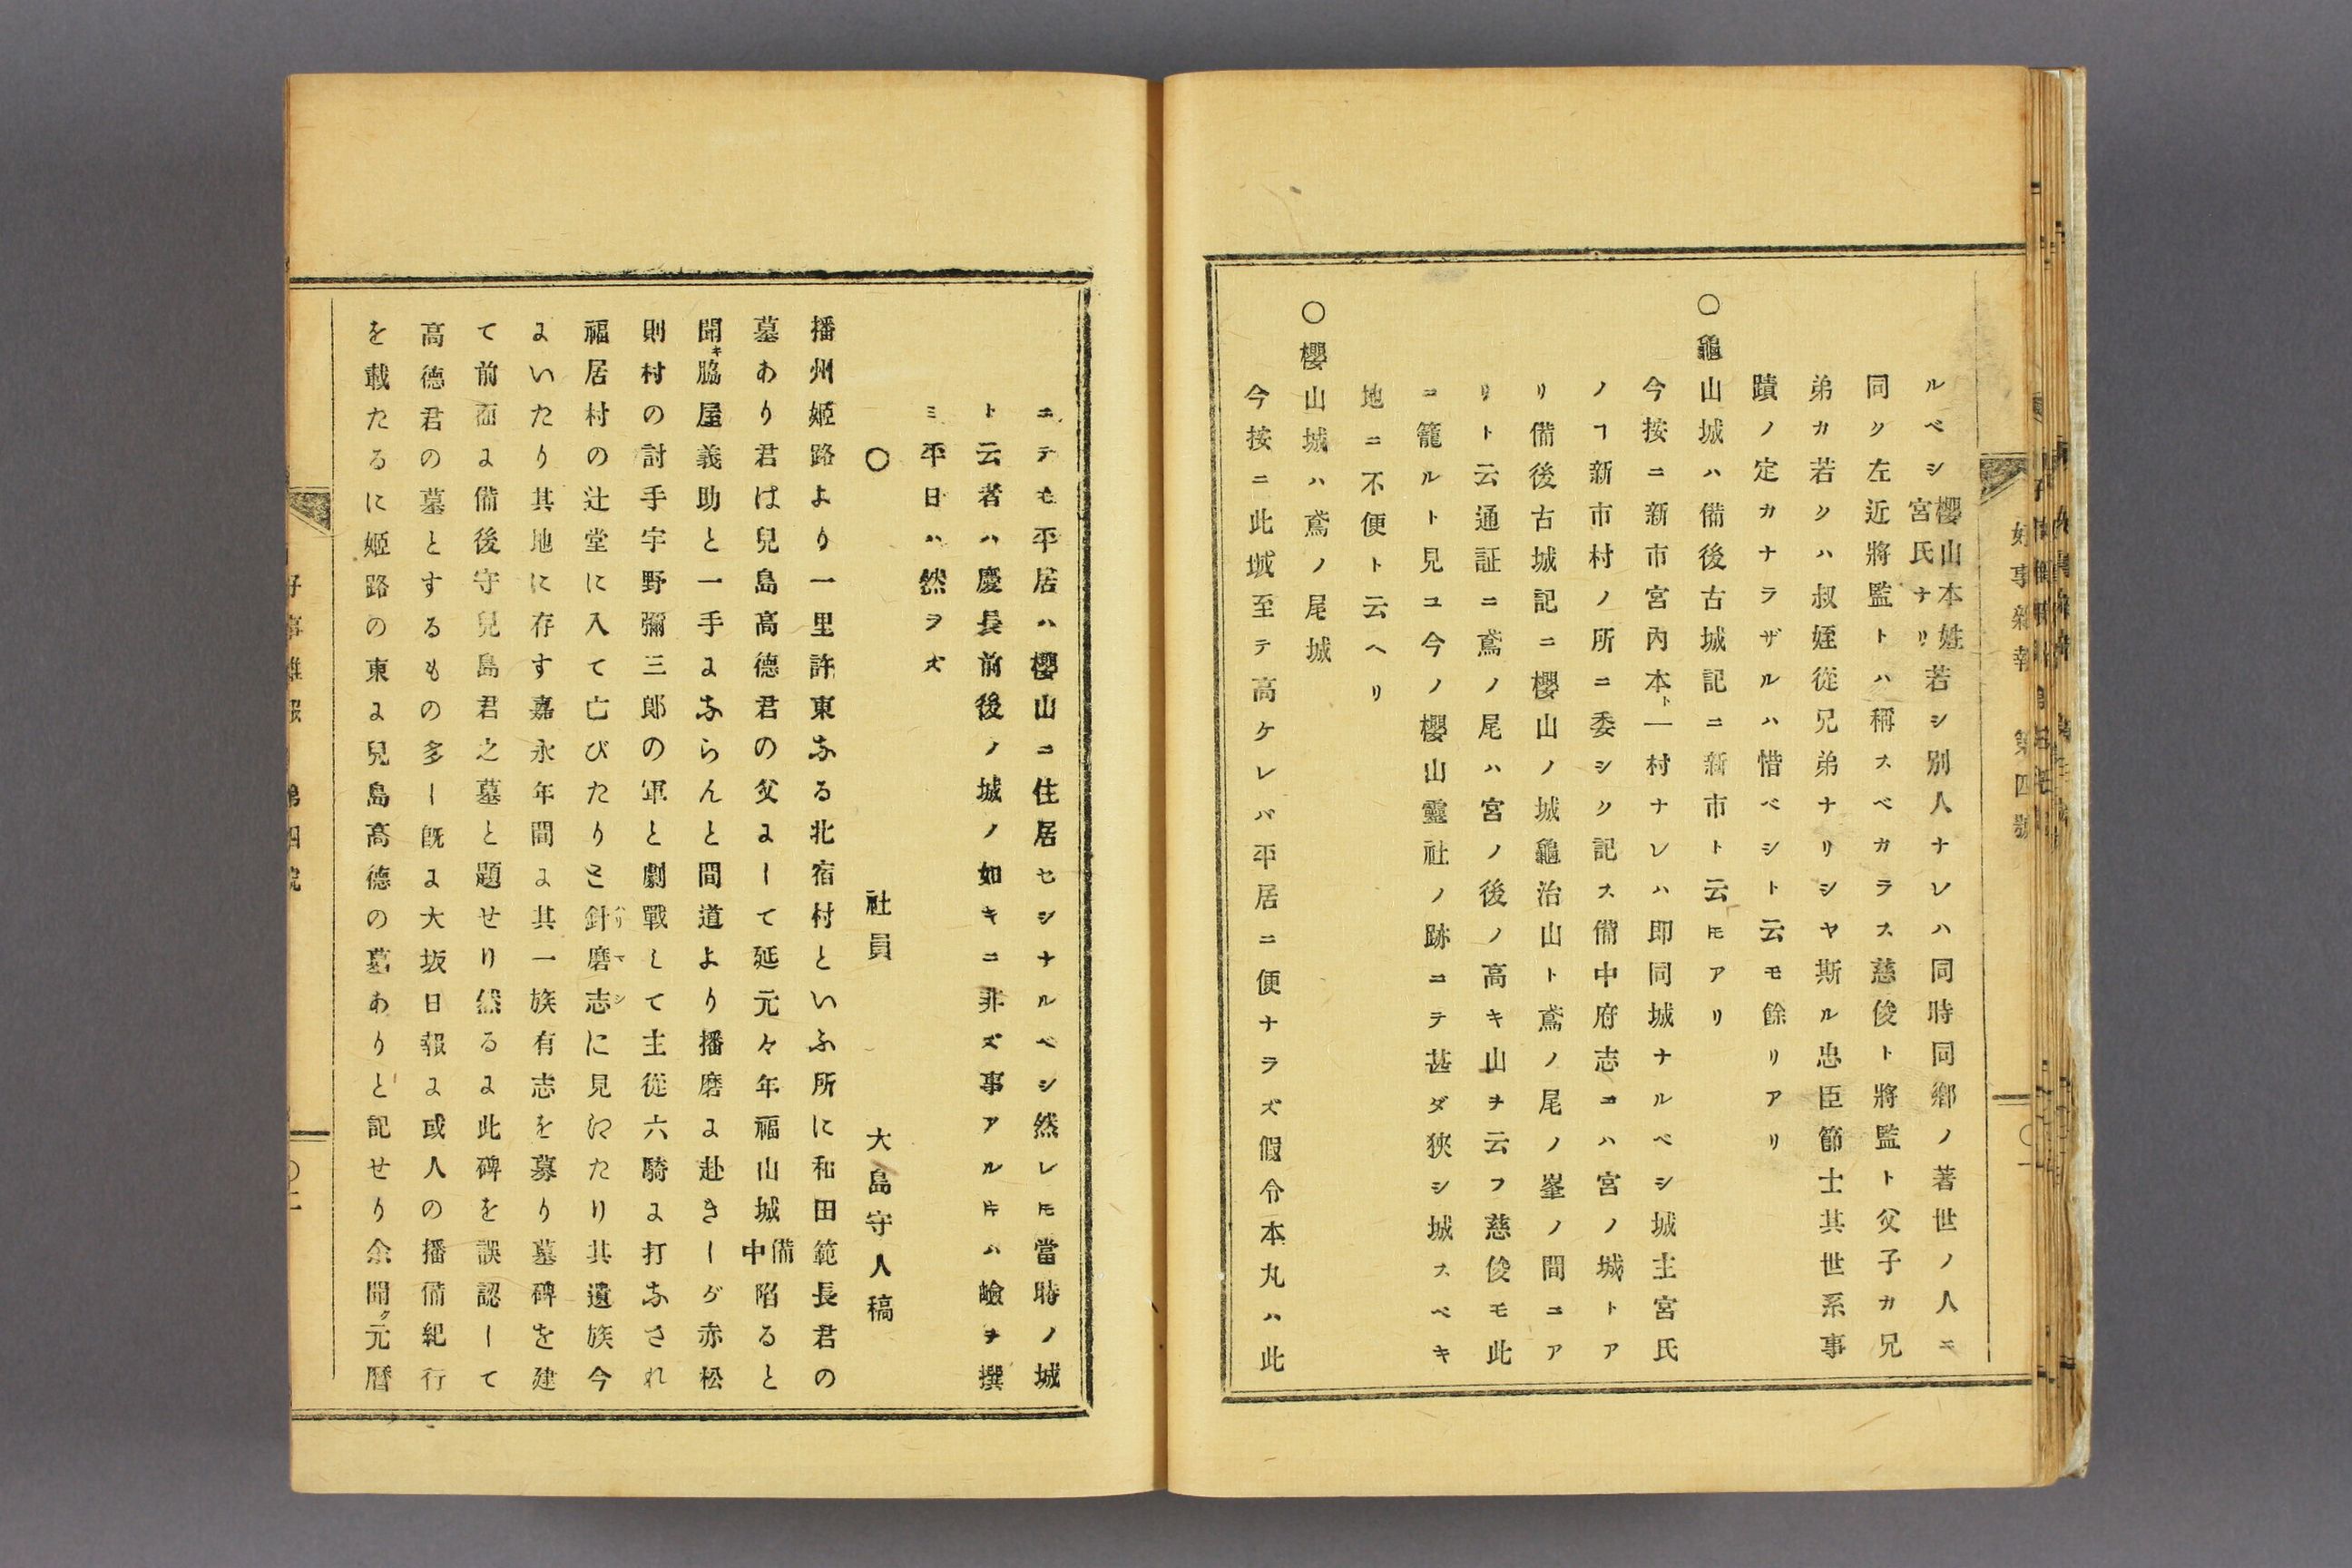 好事雜報　第四號
ルベシ櫻山本姓宮氏ナリ若シ別人ナレハ同時同鄉ノ著世ノ人ニ
同ク左近將監トハ稱スベカラス慈俊ト將監ト父子カ兄
弟カ若クハ叔姪從兄弟ナリシヤ斯ル忠臣節士其世系事
蹟ノ定カナラザルハ惜ベシト云モ餘リアリ
〇龜山城ハ備後古城記ニ新市ト云𪜈アリ
今按ニ新市宮內本ト一村ナレハ即同城ナルベシ城主宮氏
ノヿ新市村ノ所ニ委シク記ス備中府志ニハ宮ノ城トア
リ備後古城記ニ櫻山ノ城龜治山ト鳶ノ尾ノ峯ノ間ニア
リト云通証ニ鳶ノ尾ハ宮ノ後ノ高キ山ヲ云フ慈俊モ此
ニ籠ルト見ユ今ノ櫻山靈社ノ跡ニテ甚ダ狹シ城スベキ
地ニ不便ト云ヘリ
〇櫻山城ハ鳶ノ尾城
今按ニ此城至テ高ケレバ平居ニ便ナラズ假令本丸ハ此
ニテモ平居ハ櫻山ニ住居セシナルベシ然レ𪜈當時ノ城
ト云者ハ慶長前後ノ城ノ如キニ非ズ事アルキハ嶮ヲ撰
ミ平日ハ然ヲズ
〇　社員　大島守人稿
播州姬路より一里許東なる北宿村といふ所に和田範長君の
墓あり君ば兒島高德君の父よして延元々年福山城備中陷ると
聞キ脇屋義助と一手よならんと間道より播磨よ赴きしが赤松
則村の討手宇野彌三郎の軍と劇戰して主從六騎よ打なされ
福居村の辻堂に入て亡びたりと針磨志ハリマシに見江たり其遺族今
よいたり其地に存す嘉永年間よ其一族有志を募り墓碑を建
て前面よ備後守兒島君之墓と題せり然るよ此碑を誤認して
高德君の墓とするもの多し旣よ大坂日報よ或人の播備紀行
を載たるに姬路の東よ兒島高德の墓ありと記せり余聞ク元曆
好事雜報　第四號